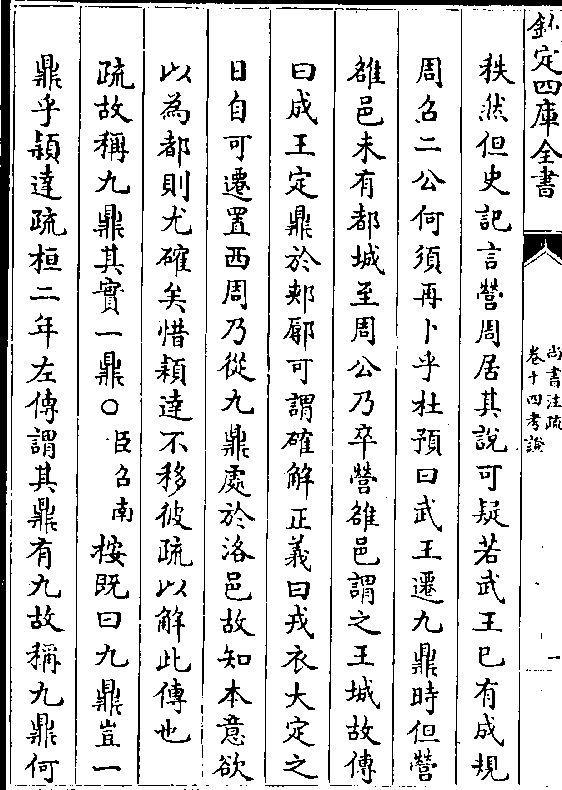 欽定四庫全書
尚書注疏
卷十四考證
一
秩然但史記言營周居其說可疑若武王已有成規
周召二公何須再卜乎杜預曰武王遷九鼎時但營
雒邑未有都城至周公乃卒營雒邑謂之王城故傳
曰成王定鼎於郟鄏可謂確解正義曰戎衣大定之
日自可遷置西周乃從九鼎處於洛邑故知本意欲
以為都則尤確矣惜穎達不移彼疏以解此傳也
疏故稱九鼎其實一鼎○臣召南按既曰九鼎豈一
鼎乎穎達疏桓二年左傳謂其鼎有九故稱九鼎何